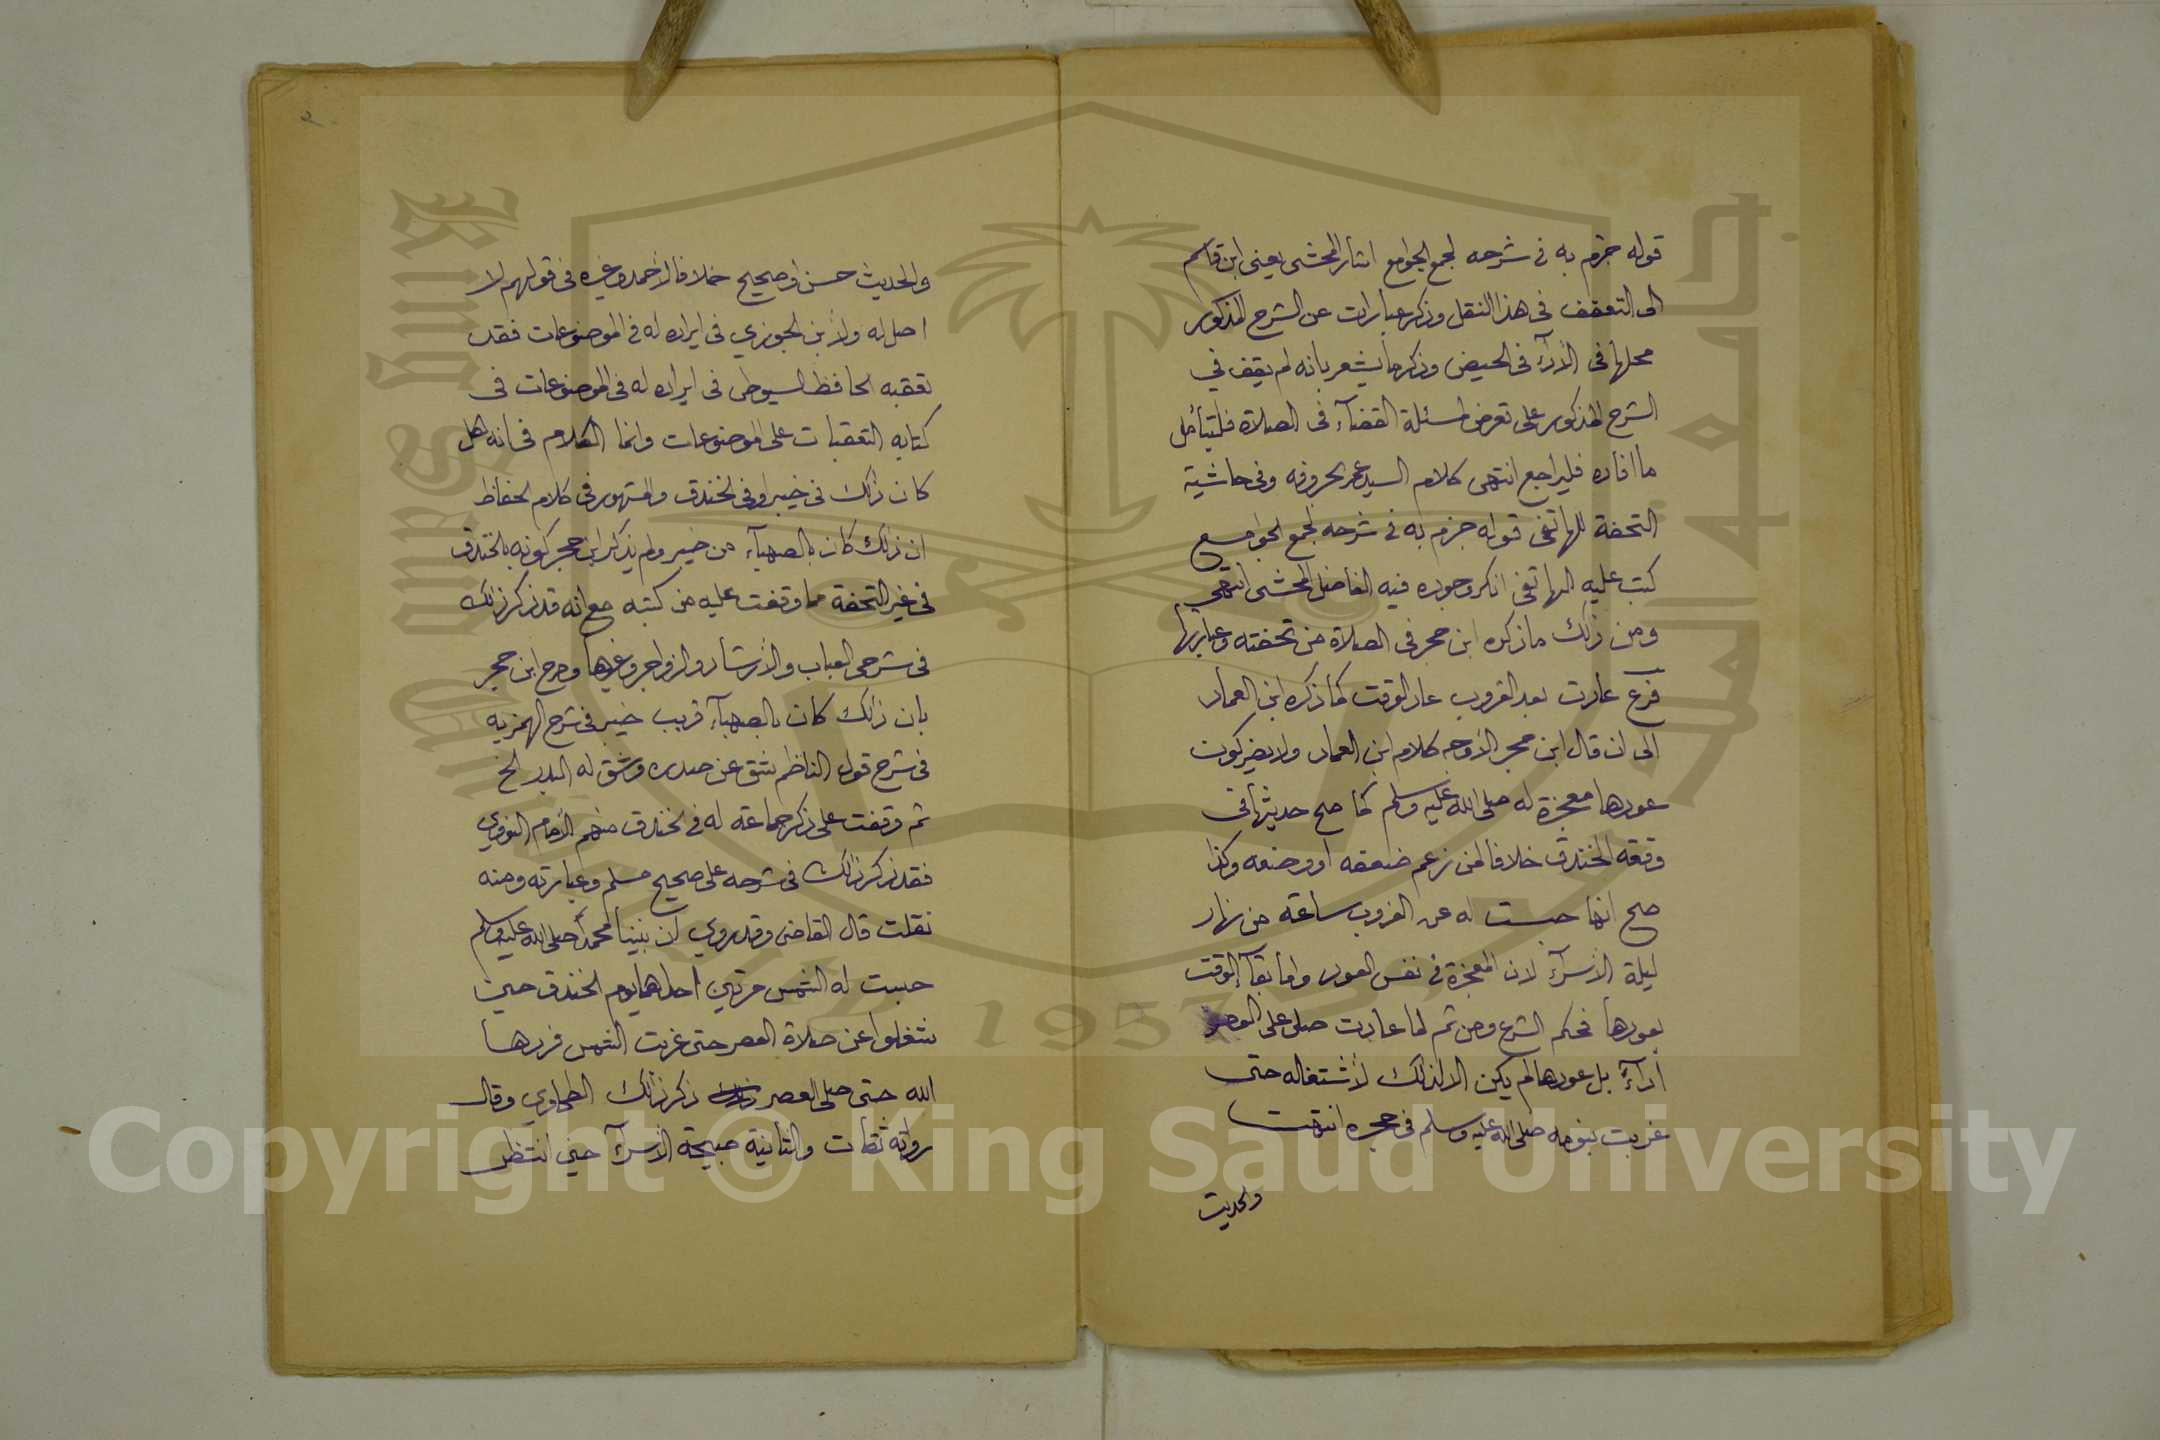 قوله جزم به في شرحه لجمع الجوامع اشار المحشى يعني ابن قاسم
الى التوقف في هذا النقل وذكر عبارات عن الشرح المذكور
محلها في الأدآء في الحيض وذكر ما يشعر بانه لم يقف في
الشرح المذكور على تعرض لمسئلة القضآء في الصلاة فليتأمل
ما افاده فليراجع انتهى كلام السيد عمر بحروفه وفي حاشية
التحفة للهاتفي قوله جزم به في شرحه لجمع الجوامع
كتب عليه الهاتفي انكر وجوده فيه الفاضل المحشى انتهى
ومن ذلك ما ذكره ابن حجر في الصلاة من تحفته وعبارتها
فرع عادت بعد الغروب عاد الوقت كما ذكره ابن العماد
الى ان قال ابن حجر الأوجه كلام ابن العماد ولا يضر كون
عودها معجزة له صلى الله عليه وسلم كما صح حديثها في
وقعة الخندق خلافا لمن زعم ضعفه او وضعه وكذا
صح انها حبست له عن الغروب ساعة من نهار
ليلة الأسرآء لان المعجزة في نفس العود واما بقآء الوقت
بعودها فحكم الشرع ومن ثم لما عادت صلى علي العصر
أدآءً بل عودها لم يكن الا لذلك لأشتغاله حتى
غربت بنومه صلى الله عليه وسلم في حجره انتهت
والحديث
والحديث حسن او صحيح خلافا لأحمد وغيره في قولهم لا
اصل له ولأبن الجوزي في ايراده له في الموضوعات فقد
تعقبه الحافظ السيوطي في ايراده له في الموضوعات في
كتابه التعقبات على الموضوعات وانما الكلام في انه هل
كان ذلك في خيبر او في الخندق والمشهور في كلام الحفاظ
ان ذلك كان بالصهبآء من خيبر ولم يذكر ابن حجر كونه بالخندق
في غير التحفة مما وقفت عليه من كتبه مع انه قد ذكر ذلك
في شرحي العباب والأرشاد والزواجر وغيرها وصرح ابن حجر
بان ذلك كان بالصهبآء قريب خيبر في شرح الهمزيه
في شرح قول الناظم شق عن صدره وشق له البدر الخ
ثم وقفت على ذكر جماعة له في الخندق منهم الأمام النووي
فقد ذكر ذلك في شرحه على صحيح مسلم وعبارته ومنه
نقلت قال القاضى وقد روي ان نبينا محمداً صلى الله عليه وسلم
حبست له الشمس مرتين احداهما يوم الخندق حين
شغلوا عن صلاة العصر حتى غربت الشمس فردها
الله حتى صلى العصر ذكر ذلك الطحاوي وقال
رواته ثقات والثانية صبيحة الأسرآء حين انتظر
Copyright © King Saud University
King Saud University
جامعة الملك سعود
1957